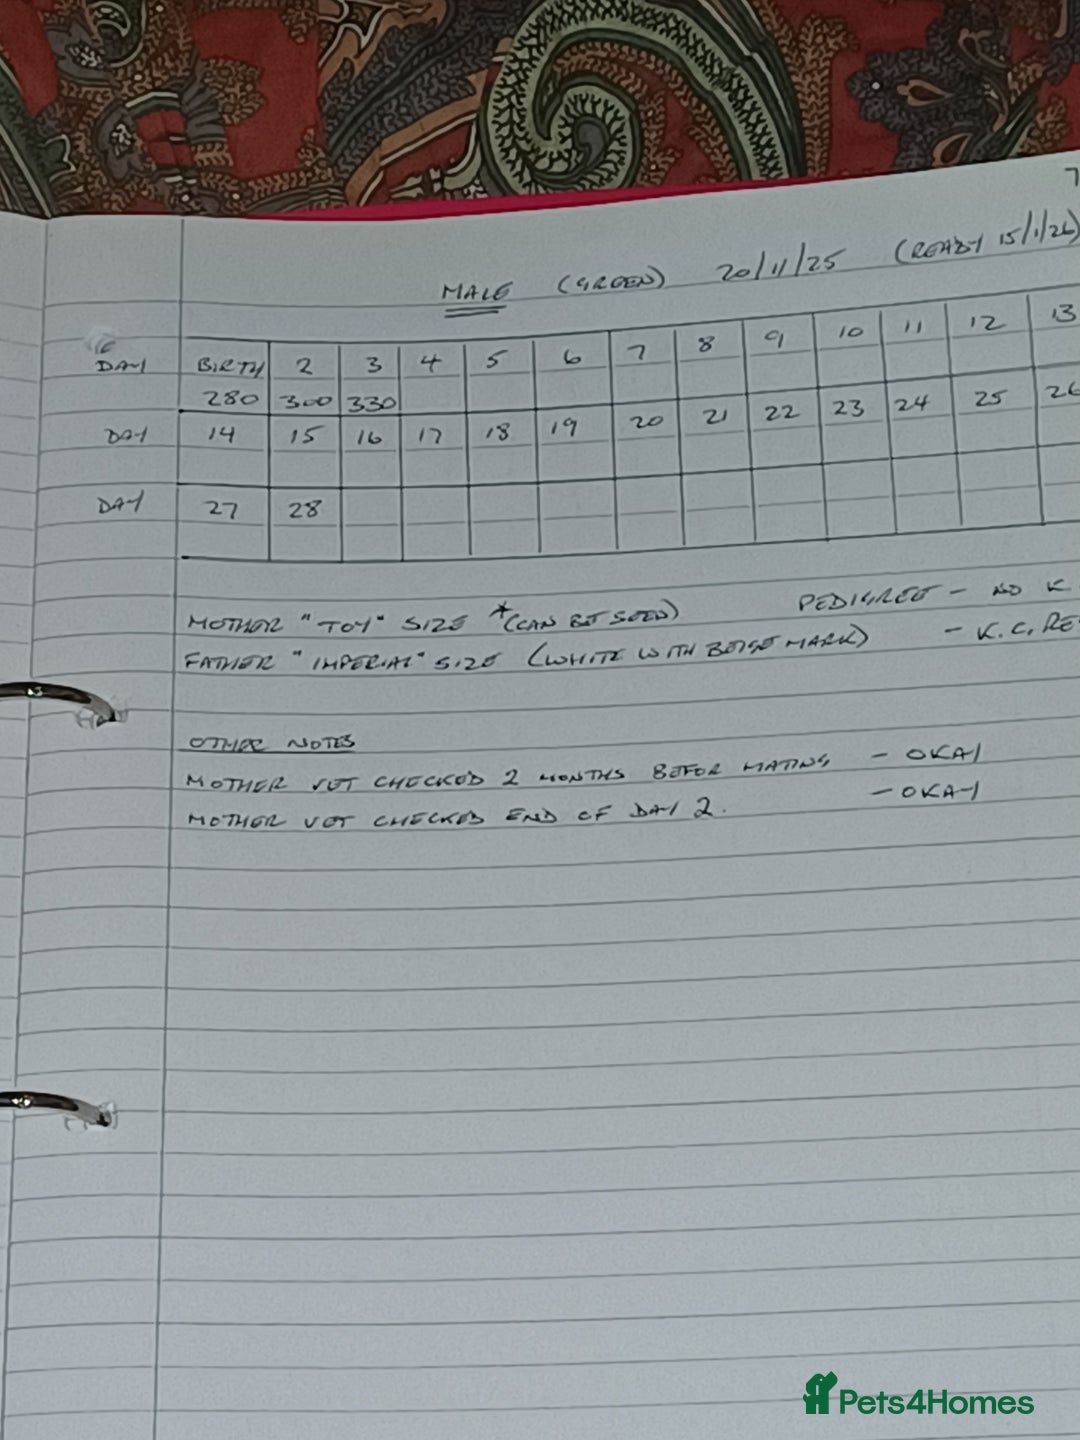 7
MALE (GREEN) 20/11/25 (READY 15/1/26)
DAY BIRTH 2 3 4 5 6 7 8 9 10 11 12 13
280 300 330
DAY 14 15 16 17 18 19 20 21 22 23 24 25 26
DAY 27 28
MOTHER "TOY" SIZE *(CAN BE SEEN) PEDIGREE - NO K
FATHER "IMPERIAL" SIZE (WHITE WITH BEIGE MARK) - K.C. RE
OTHER NOTES
MOTHER VET CHECKED 2 MONTHS BEFOR MATING - OKAY
MOTHER VET CHECKED END OF DAY 2. - OKAY
Pets4Homes